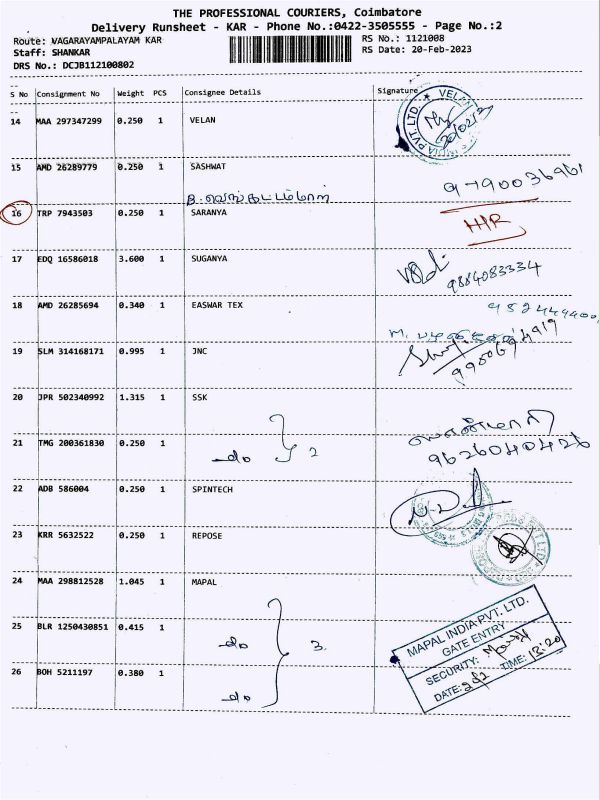 THE PROFESSIONAL COURIERS, Coimbatore
Delivery Runsheet - KAR - Phone No.:0422-3505555 - Page No.:2
Route: VAGARAYAMPALAYAM KAR
RS No.: 1121008
Staff: SHANKAR
RS Date: 20-Feb-2023
DRS No.: DCJB112100802
S No Consignment No Weight PCS Consignee Details Signature
14 MAA 297347299 0.250 1 VELAN
VELAN INDIA PVT. LTD.
15 AMD 26289779 0.250 1 SASHWAT
16 TRP 7943503 0.250 1 SARANYA
17 EDQ 16586018 3.600 1 SUGANYA
9884083334
18 AMD 26285694 0.340 1 EASWAR TEX
19 SLM 314168171 0.995 1 JNC
20 JPR 502340992 1.315 1 SSK
21 TMG 200361830 0.250 1 do 2
9626040426
22 ADB 586004 0.250 1 SPINTECH
23 KRR 5632522 0.250 1 REPOSE
24 MAA 298812528 1.045 1 MAPAL
25 BLR 1250430851 0.415 1 do 3.
26 BOH 5211197 0.380 1 do
MAPAL INDIA PVT. LTD.
GATE ENTRY
SECURITY:
DATE: TIME: 13:20